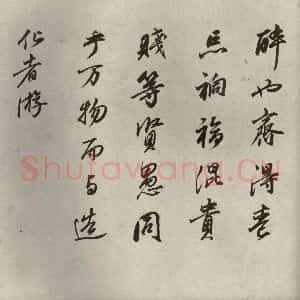 醉也齊得喪
忘禍福混貴
賤等賢愚同
乎万物而与造
化者游
Shufawang.CN